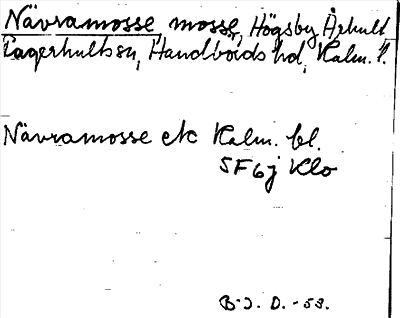 Nävramosse mosse, Högsby Århult
Fagerhults sn, Handbörds hd, Kalm. l.
Nävramosse ek Kalm. bl.
5F6j Klo
B.J. D. -53.